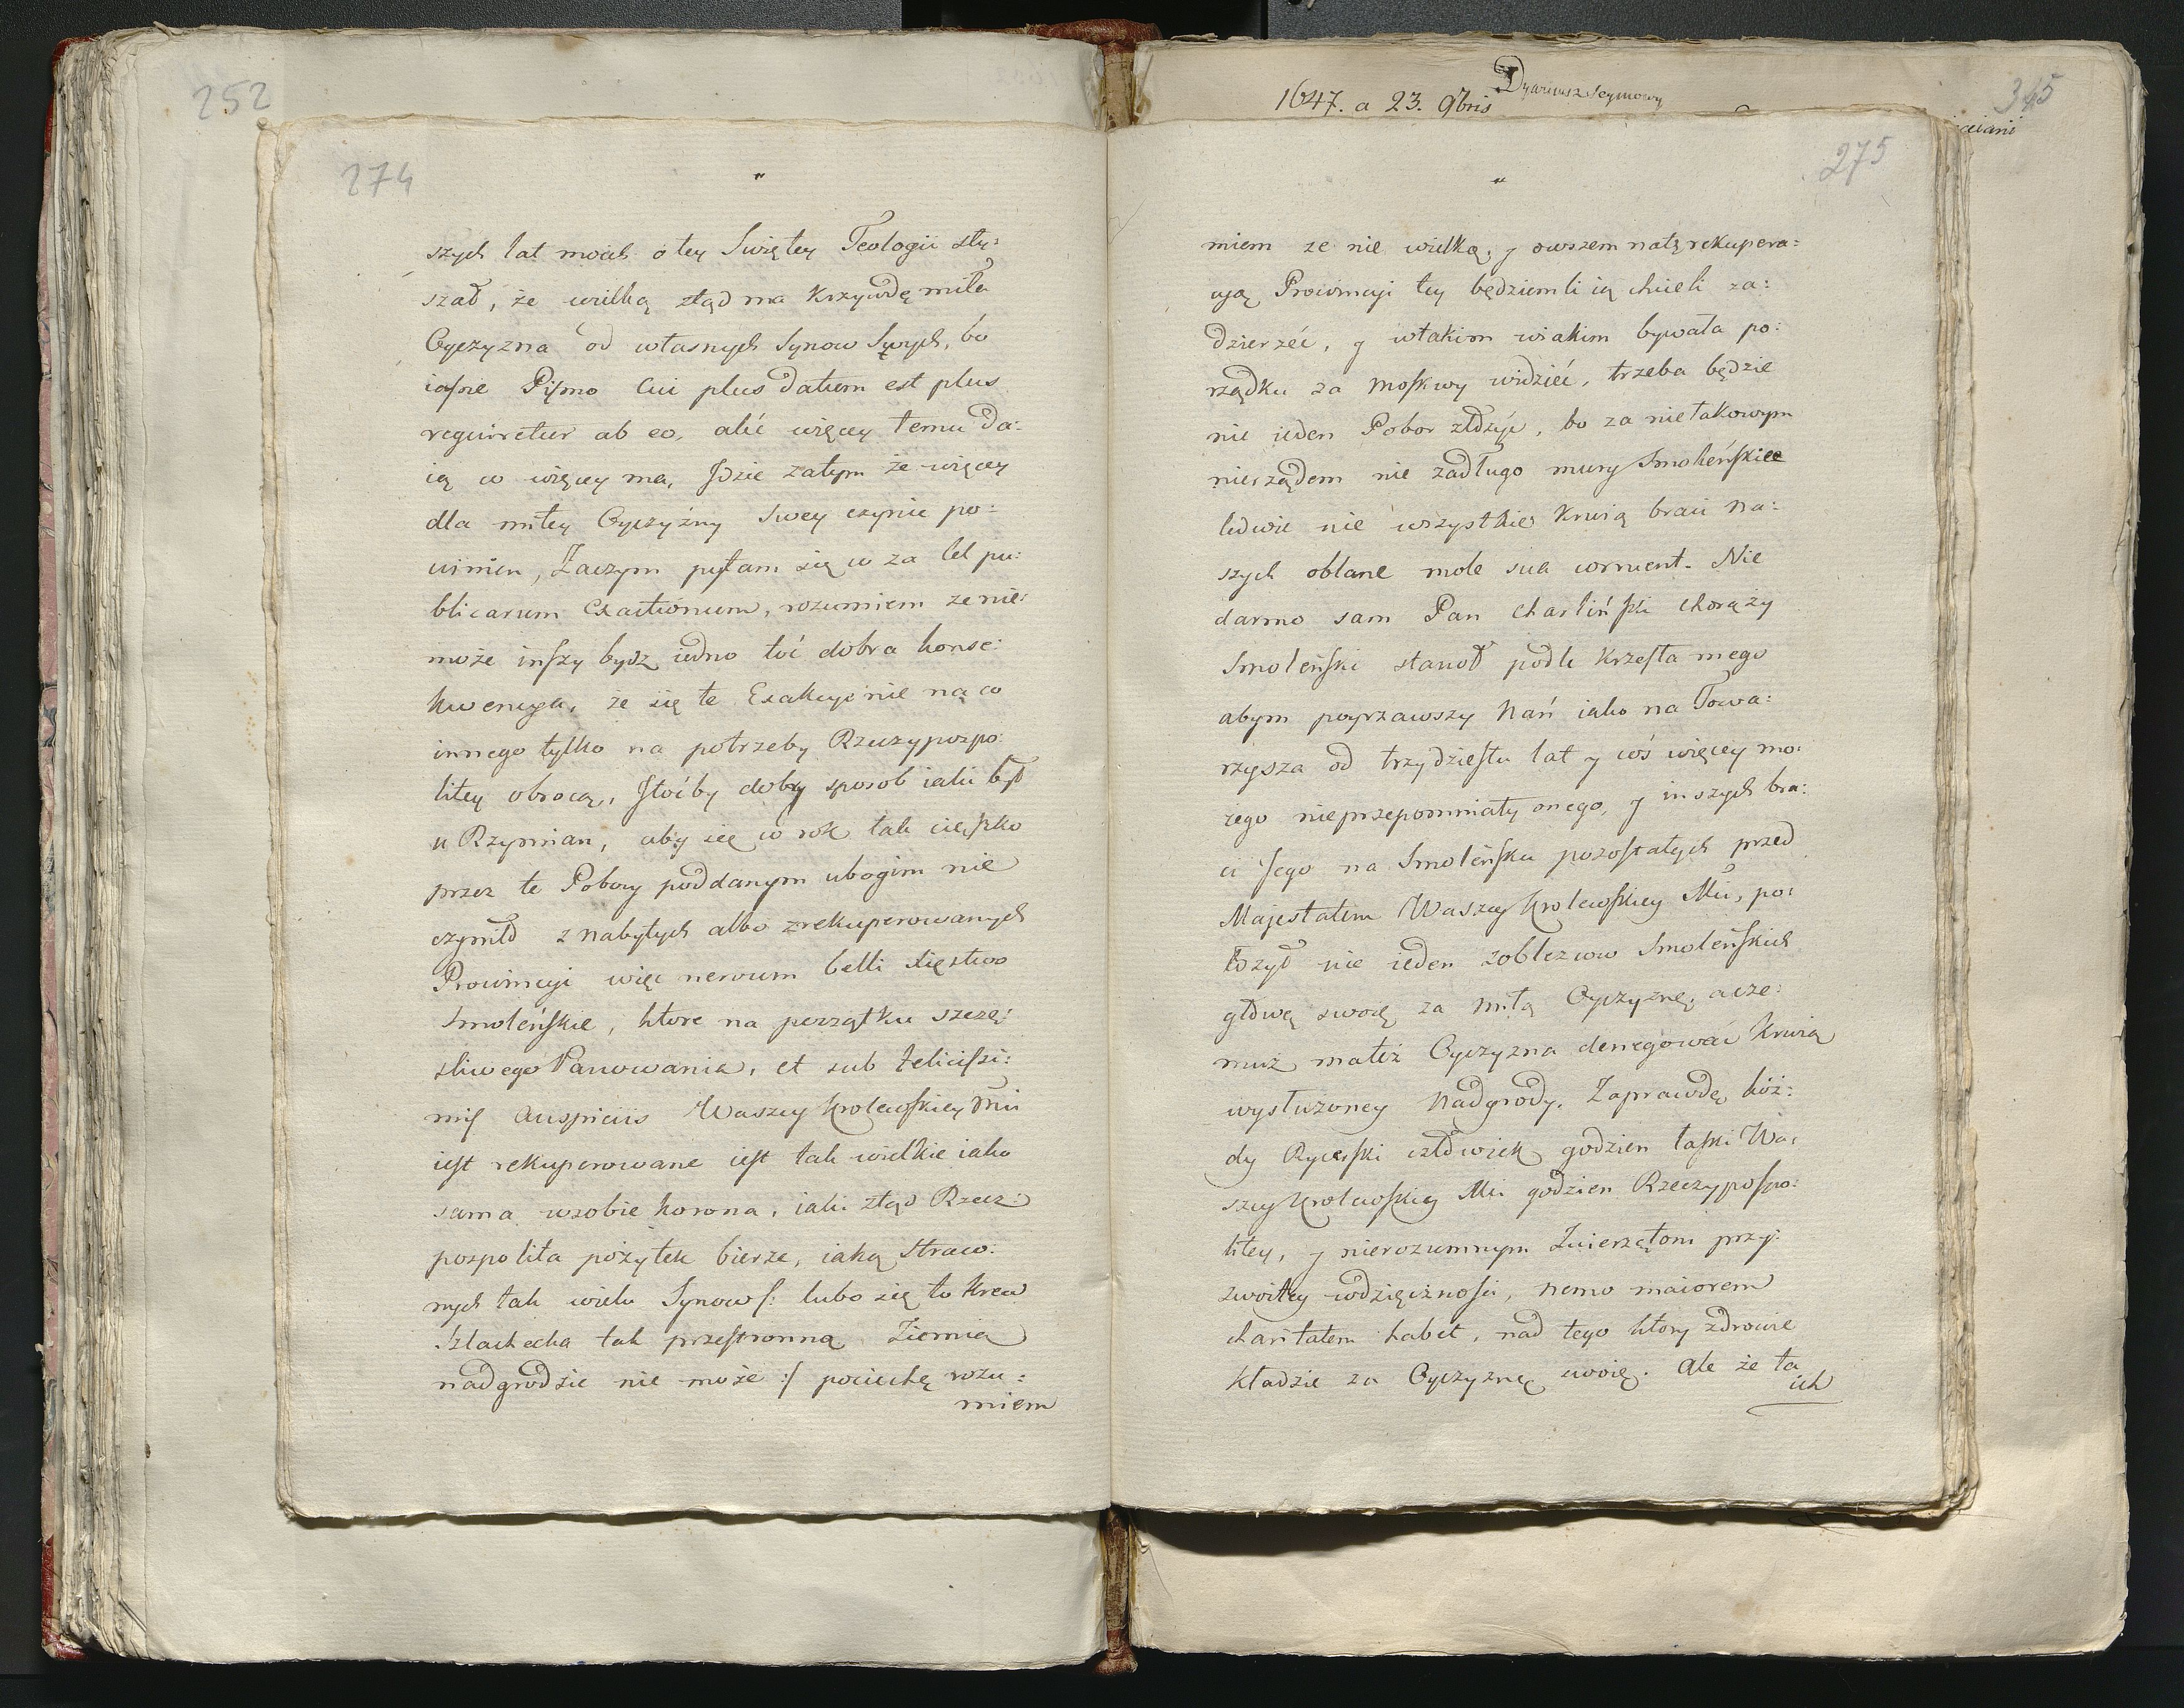 252
274
"
szych lat moich o tey Swiętey Teologii sły:
szał, że wielką ztąd ma Krzywdę miła
Oyczyzna od własnych Synow Swych, bo
iasne Pismo Cui plus datum est plus
requiretur ab eo, alić więcey temu Da:
ią co więcey ma, Idzie zatym że więcey
dla miłey Oyczyzny Swey czynić po:
winien, Zaczym pytam się co za Cel pu:
blicarum Exactionum, rozumiem ze nie:
może inszy bydz iedno toć dobra konse:
kwencya, że się te Exakcye nie na co
innego tylko na potrzeby Rzeczypospo:
litey obrocą, Itoćby dobry sposob iaki był
u Rzymian, aby się co rok tak cięszko
przez te Pobory poddanym ubogim nie
czynił z nabytych albo zrekuperowanych
Prowincyi więc nervum belli Xięstwo
Smoleńskie, ktore na początku szczę:
sliwego Panowania, et sub felicissi:
mis Auspiciis Waszey Krolewskiey Mci
iest rekuperowane iest tak wielkie iako
sama wsobie Korona, iaki ztąd Rzecz:
pospolita pożytek bierze, iaką Straw:
nych tak wielu Synow /: lubo się to Krew
Szlachecka tak przestronną Ziemią
nadgrodzić nie może :/ pociechę rozu:
miem
1647. a 23. 9bris
Dyariusz Seymowy
345
275
"
miem ze nie wielką, y owszem natę rekupera:
cyą Prowincyi tey będziemli ią chcieli za:
dzierzeć, y wtakim wiakim bywała po:
rządku za Moskwy widzieć, trzeba będzie
nie ieden Pobor złożyć, bo za nietakowym
nierządem nie zadługo mury Smoleńskie
ledwie nie wszystkie Krwią braci na:
szych oblane mole sua corruent. Nie
darmo sam Pan Charliński Chorąży
Smoleński stanoł podle Krzesła mego
abym poyrzawszy Nań iako na Towa:
rzysza od trzydziestu lat y coś więcey mo:
iego nieprzepomniał y onego, y inszych bra:
ci Jego na Smoleńsku pozostałych przed
Majestatem Waszey Krolewskiey Mci, po:
łożył nie ieden zoblezcow Smoleńskich
głowę swoię za miłą Oyczyznę, acze:
muż małeż Oyczyzna denegować Krwią
wysłużoney Nadgrody. Zaprawdę koż:
dy Rycerski człowiek godzien łaski Wa:
szey Krolewskiey Mci godzien Rzeczypospo:
litey, y nierozumnym Zwierzętom przy:
zwoitey wdzięcznosci, nemo maiorem
charitatem habet, nad tego ktory zdrowie
kładzie za Oyczyznę swoię. Ale że ta
ich